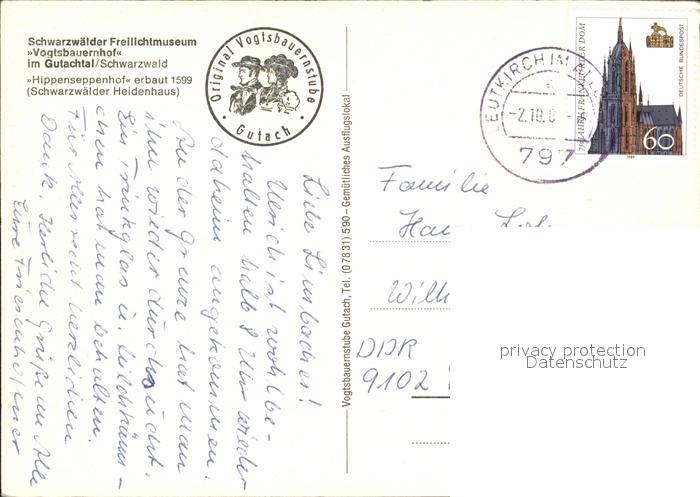 Schwarzwälder Freilichtmuseum
»Vogtsbauernhof«
im Gutachtal/Schwarzwald
»Hippenseppenhof« erbaut 1599
(Schwarzwälder Heidenhaus)
Original Vogtsbauernstube
· Gutach ·
Liebe Limbachs!
Ulrich ist wohlbe-
halten halb 8 Uhr wieder
daheim angekommen.
An der Grenze hat man
ihn wieder durchsucht.
Ein Trinkglas u.
chen hat man behalten.
Für Euer recht herzlichen
Dank, herzliche Grüße an Alle
Eure
Vogtsbauernstube Gutach, Tel. (07831) 590 – Gemütliches Ausflugslokal
LEUTKIRCH IM
-2.10.
797
750 JAHRE FRANKFURTER DOM
DEUTSCHE BUNDESPOST
60
1989
Familie
Wilh
DDR
9102
privacy protection
Datenschutz